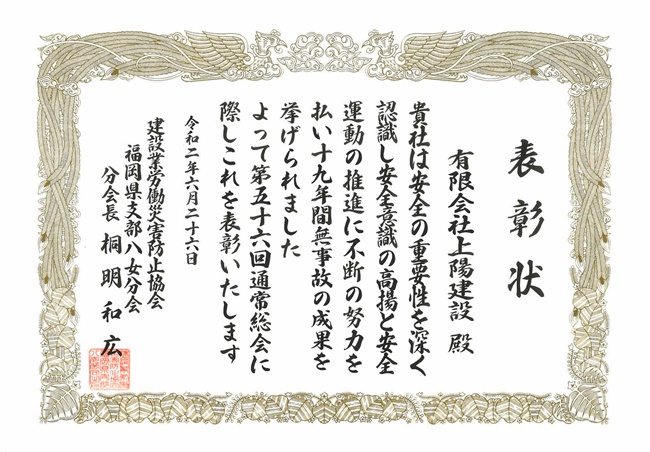 表彰状
有限会社上陽建設 殿
貴社は安全の重要性を深く
認識し安全意識の高揚と安全
運動の推進に不断の努力を
払い十九年間無事故の成果を
挙げられました
よって第五十六回通常総会に
際しこれを表彰いたします
令和二年六月二十六日
建設業労働災害防止協会
福岡県支部八女分会
分会長 桐明和広